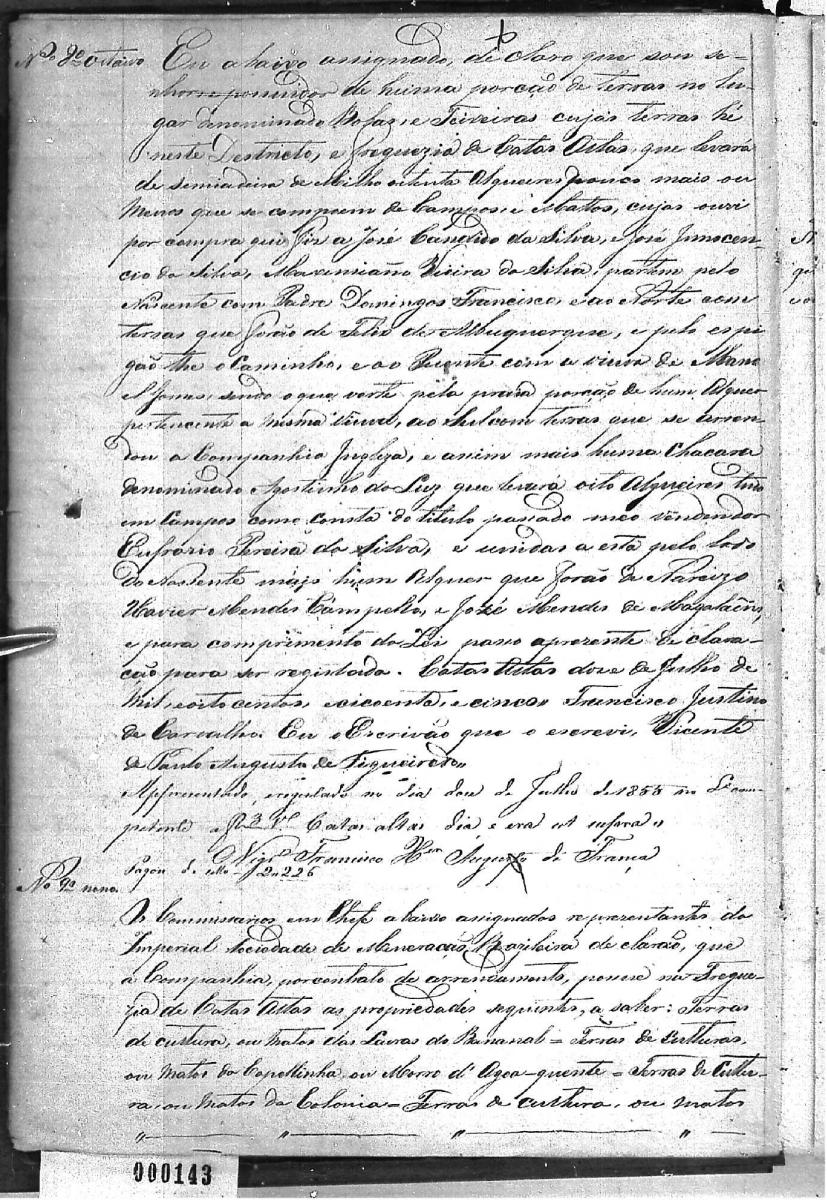 Nº 8º oitavo Eu abaixo assignado, declaro que sou se-
nhor e possuidor de huma porção de terras no lu-
gar denominado e Teixeiras cujas terras hé
neste Destricto, e Freguezia de Catas Altas, que levará
de semiadeira de Milho oitenta Alqueires pouco mais ou
menos que se compoem de Campos, e Mattos, cujas ouvi
por compra que fiz a José Candido da Silva, e José Innocen-
cio da Silva, Maximiano Vieira da Silva, partem pelo
Nascente com Padre Domingos Francisco, e ao Norte com
terras que forão de Felis de Albuquerque, e pelo espi-
gão thé o Caminho, e ao Puente com a viuva de Mano
el Gomes, sendo o que verte pela praia porção de hum Alquer
pertencente a mesma Viuva, ao Sul com terras que se arren-
dou a Companhia Ingleza, e assim mais huma Chacara
denominado Agostinho da Luz que levará oito Alqueires tudo
em Campos como consta do titulo passado meo vendendor
Eufrazio Pereira da Silva, e unidas a esta pelo lado
do Nassente mais hum Alquer que forão de Narcizo
Xavier Mendes Campello, e José Mendes de Magalãins,
e para comprimento da Lei passo aprezente declara-
ção para ser registada. Catas Altas doze de Julho de
mil, e oito centos, e cicoenta, e cinco. Francisco Justino
de Carvalho. Eu o Escrivão que o escrevi, Vicente
de Paulo Augusto de Figueiredo.
Appresentado, e registado no dia doze de Julho de 1855 no Lº com-
petente a fl 3 vº Catas altas dia, e era ut supra
Vigrº Francisco Xer Augusto de França
Pagou de 2$226
Nº 9º nono.
Os Commissarios em Chefe abaixo assignados reprezentantes da
Imperial Sociedade de Mineração Brazileira declarão, que
a Companhia, por contrato de arrendamento, possue na Fregue-
zia de Catas Altas as propriedades seguintes, a saber: Terras
de cultura, ou matos das Lavras do Bananal = Terras de Culturas,
ou Matos da Capellinha, ou Morro d'Agoa-quente = Terras de Cultu-
ra, ou Matos da Colonia = Terras de cultura, ou matos
000143